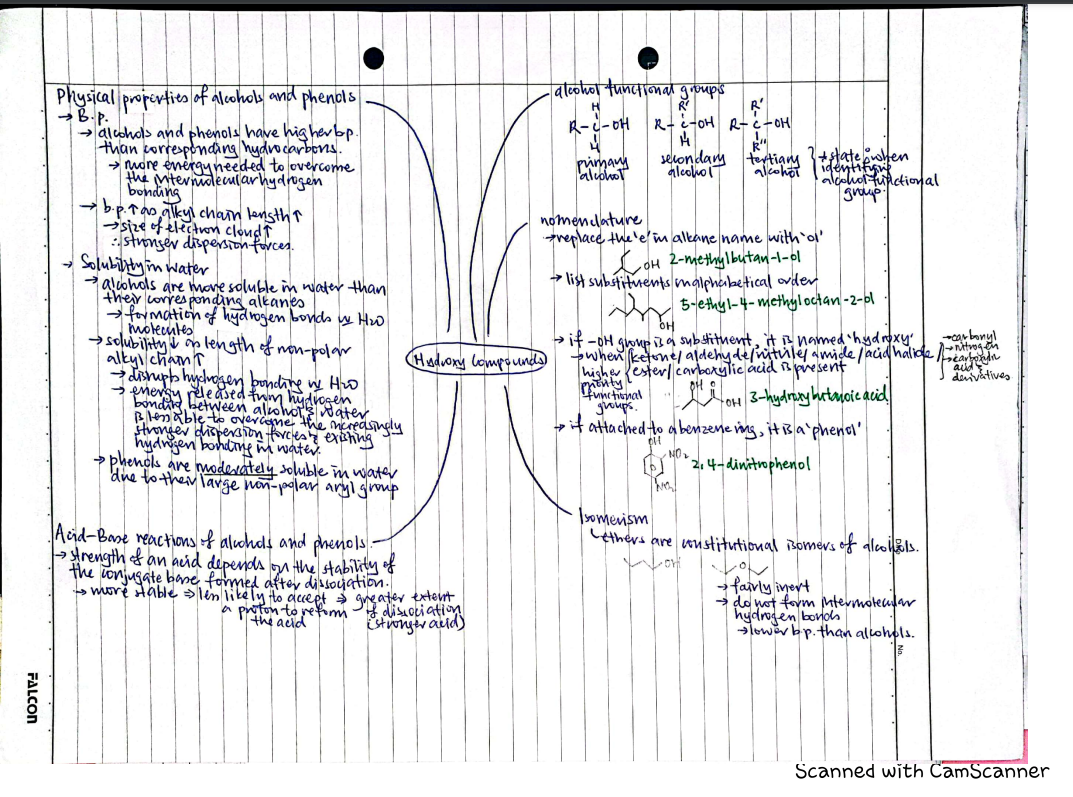 Physical properties of alcohols and phenols
→ B.p.
→ alcohols and phenols have higher b.p.
than corresponding hydrocarbons.
→ more energy needed to overcome
the intermolecular hydrogen
bonding
→ b.p.↑ as alkyl chain length↑
→ size of electron cloud↑
∴ stronger dispersion forces.
→ Solubility in water
→ alcohols are more soluble in water than
their corresponding alkanes
→ formation of hydrogen bonds w H2O
molecules
→ solubility↓ as length of non-polar
alkyl chain↑
→ disrupts hydrogen bonding w H2O
→ energy released from hydrogen
bonding between alcohol & water
is less able to overcome the increasingly
stronger dispersion forces & existing
hydrogen bonding in water.
→ phenols are moderately soluble in water
due to their large non-polar aryl group
Acid-Base reactions of alcohols and phenols
→ strength of an acid depends on the stability of
the conjugate base formed after dissociation.
→ more stable ⇒ less likely to accept ⇒ greater extent
a proton to reform of dissociation
the acid (stronger acid)
Hydroxy Compounds
alcohol functional groups
H R' R'
R-C-OH R-C-OH R-C-OH
H H R"
primary secondary tertiary
alcohol alcohol alcohol
→ state when
identifying
alcohol functional
group.
nomenclature
→ replace the 'e' in alkane name with 'ol'
OH 2-methylbutan-1-ol
→ list substituents in alphabetical order
5-ethyl-4-methyloctan-2-ol
OH
→ if -OH group is a substituent, it is named 'hydroxy'
→ when ketone/aldehyde/nitrile/amide/acid halide/
ester/carboxylic acid is present
higher
priority
functional
groups.
→ carbonyl
→ nitrogen
→ carboxylic
acid &
derivatives
OH O
OH 3-hydroxybutanoic acid
→ if attached to a benzene ring, it is a 'phenol'
OH
NO2 2,4-dinitrophenol
NO2
Isomerism
ethers are constitutional isomers of alcohols.
OH O
→ fairly inert
→ do not form intermolecular
hydrogen bonds
→ lower b.p. than alcohols.
No.
FALCON
Scanned with CamScanner